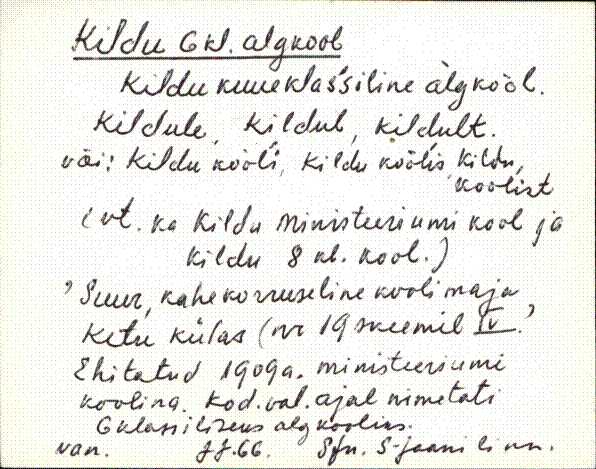 Kildu 6 kl. algkool
Kildu kuueklas'siline àlgkòòl.
Kildule, Kildul, Kildult.
või: Kildu kòòli, Kildu kòòlis, Kildu
koolist
(vt. ka Kildu ministeeriumi kool ja
Kildu 8 kl. kool.)
"Suur, kahekorruseline koolimaja
Ketu külas (nr 19 skeemil IV."
Ehitatud 1909a. ministeeriumi
koolina. Kod.val.ajal nimetati
6 klassiliseks algkooliks.
van. 66. S-Jaani linn.